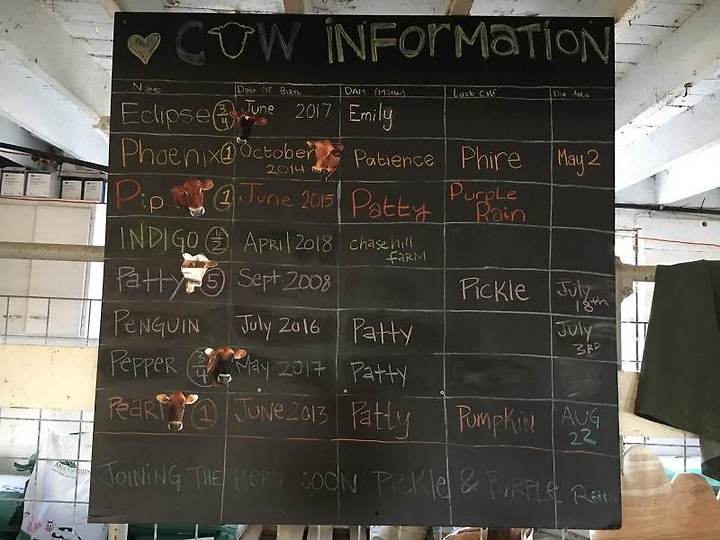 COW INFORMATION
Name Date of Birth DAM (Mother) Last Calf Due date
Eclipse 3/4 June 2017 Emily
Phoenix 1 October 2014 Patience Phire May 2
Pip 1 June 2015 Patty Purple Rain
INDIGO 1/2 APRIL 2018 chase hill FARM
Patty 5 Sept 2008 Pickle July 18th
PENGUIN July 2016 Patty July 3RD
Pepper 3/4 May 2017 Patty
Pearl 1 JUNE 2013 Patty Pumpkin AUG 22
JOINING THE HERD SOON PICKLE & PURPLE Rain